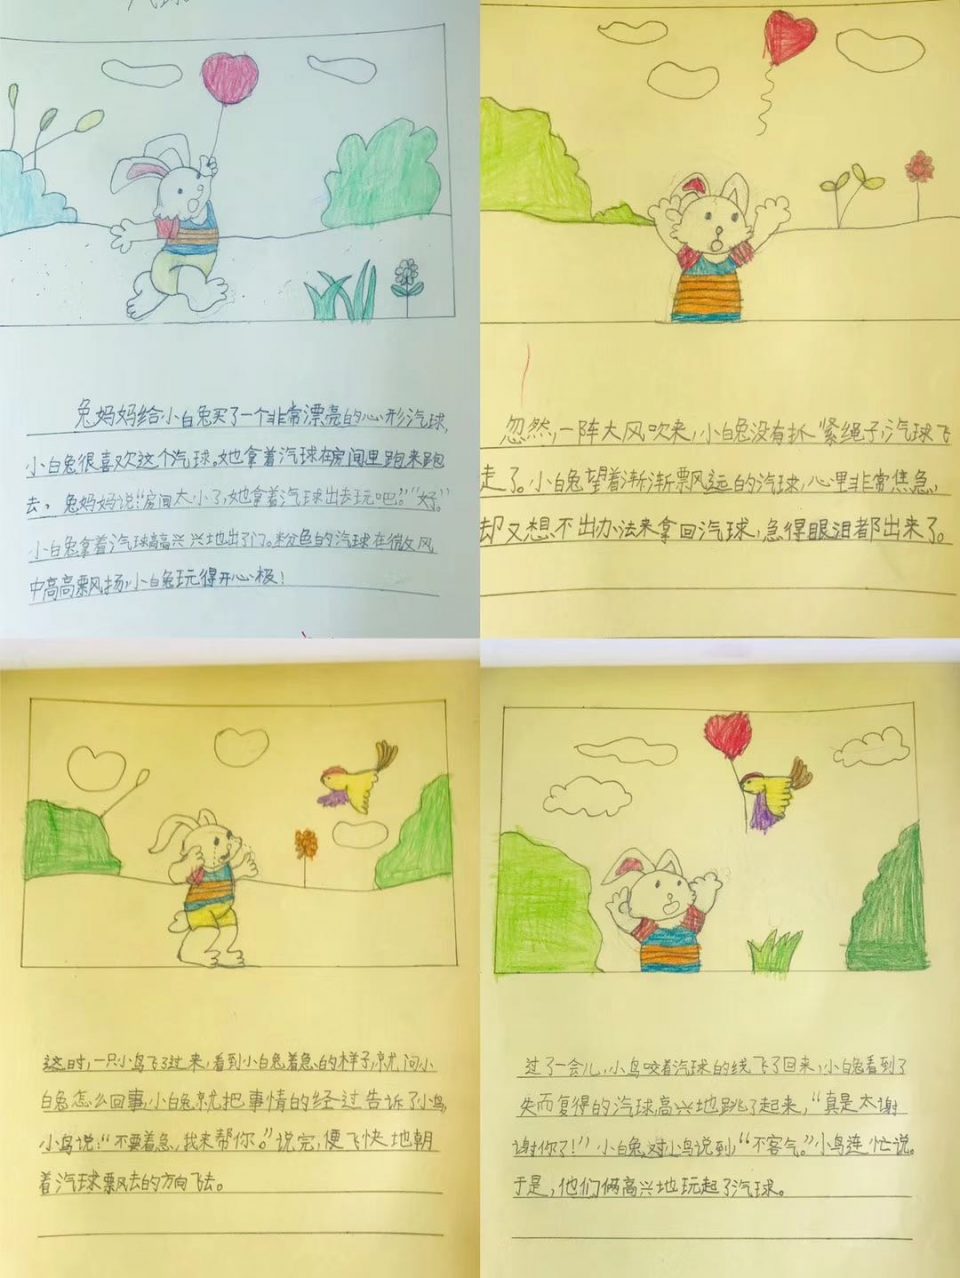 汽球
兔妈妈给小白兔买了一个非常漂亮的心形汽球,
小白兔很喜欢这个汽球。她拿着汽球在房间里跑来跑
去。兔妈妈说:"房间太小了,她拿着汽球出去玩吧?""好。"
小白兔拿着汽球高高兴兴地出了门。粉色的汽球在微风
中高高飘扬,小白兔玩得开心极!
忽然,一阵大风吹来,小白兔没有抓紧绳子,汽球飞
走了。小白兔望着渐渐飘远的汽球,心里非常焦急,
却又想不出办法来拿回汽球,急得眼泪都出来了。
这时,一只小鸟飞了过来,看到小白兔着急的样子,就问小
白兔怎么回事,小白兔就把事情的经过告诉了小鸟,
小鸟说:"不要着急,我来帮你。"说完,便飞快地朝
着汽球飘去的方向飞去。
过了一会儿,小鸟咬着汽球的线飞了回来,小白兔看到了
失而复得的汽球高兴地跳了起来,"真是太谢
谢你了!"小白兔对小鸟说到,"不客气。"小鸟连忙说。
于是,他们俩高兴地玩起了汽球。